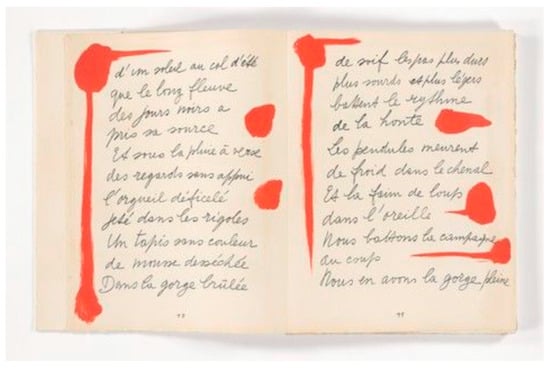 d'un soleil au col d'été
que le long fleuve
des jours noirs a
pris sa source
Et sous la pluie à verse
des regards sans appui
l'orgueil déficelé
jeté dans les rigoles
Un tapis sans couleur
de mousse desséchée
Dans la gorge brûlée
de soif les pas plus durs
plus sourds et plus légers
battent le rythme
de la honte
Les pendules meurent
de froid dans le chenal
Et la faim de loup
dans l'oreille
Nous battons la campagne
au coup
Nous en avons la gorge pleine